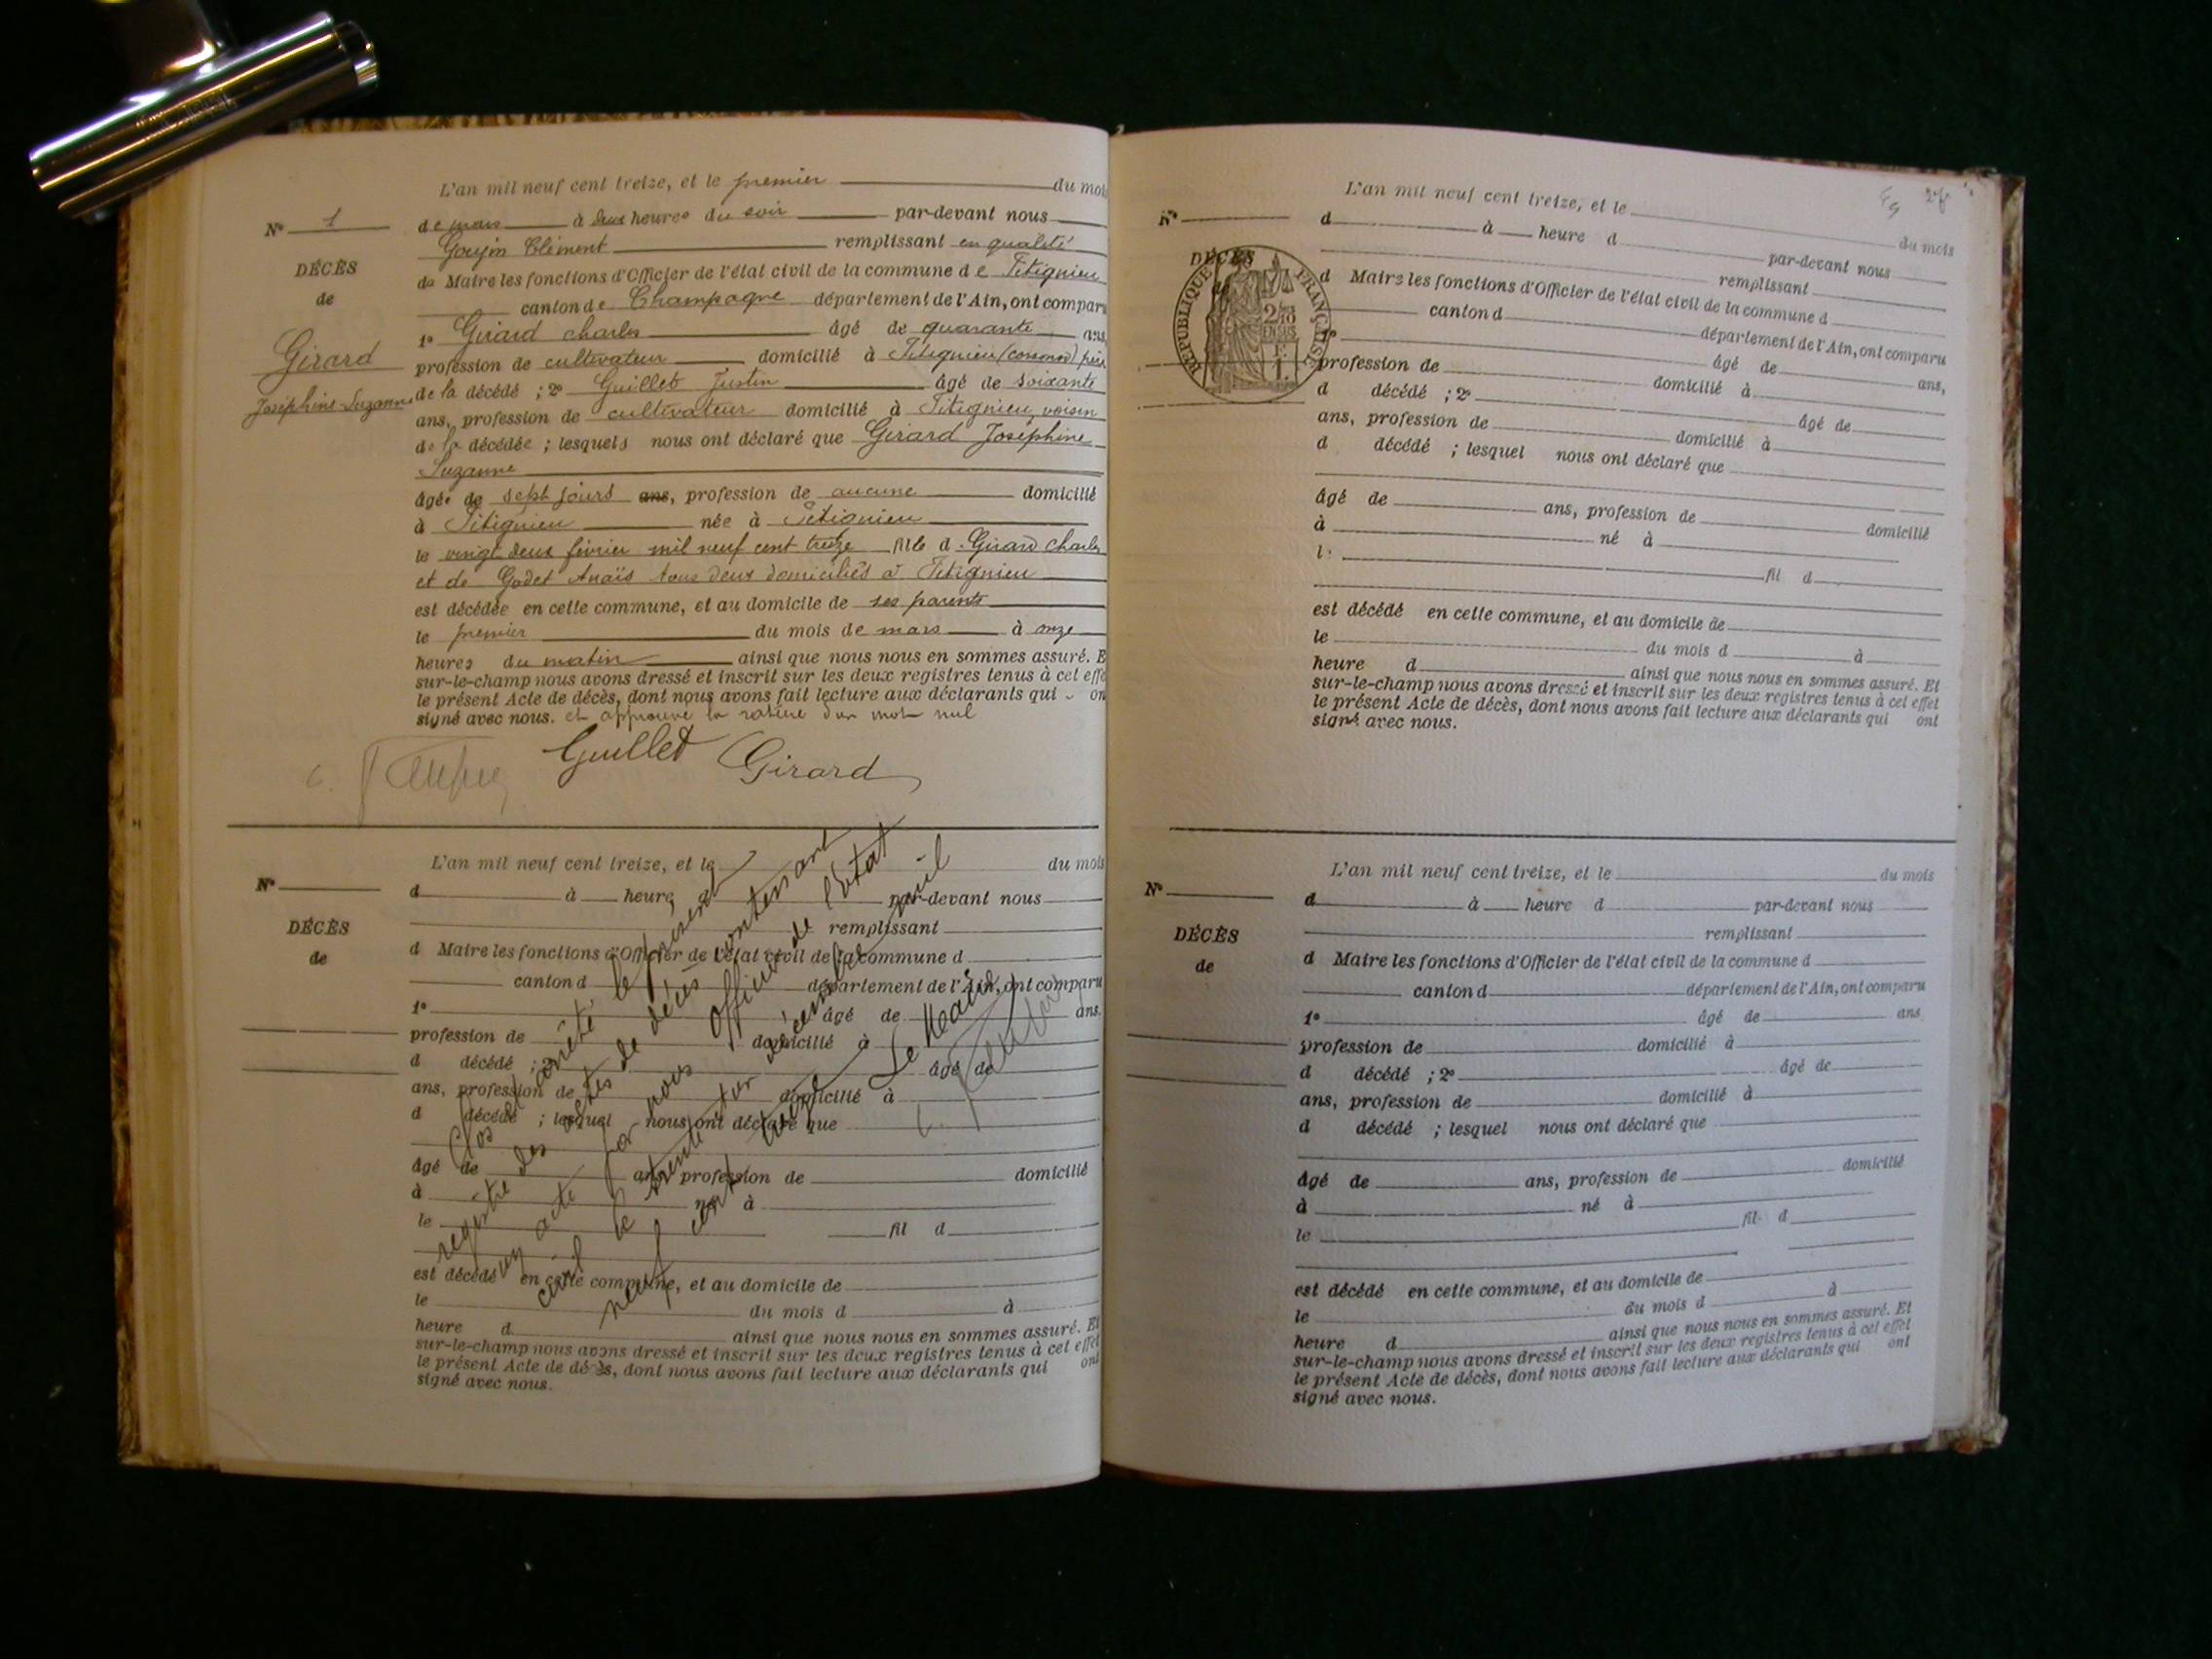 L'an mil neuf cent treize, et le premier du mois
N° 1
de mars à deux heures du soir par-devant nous
Goujon Clément remplissant en qualité
de Maire les fonctions d'Officier de l'état civil de la commune de Titignieu
DÉCÈS
de
canton de Champagne département de l'Ain, ont comparu
1° Girard charles âgé de quarante ans,
Girard
Joséphine-Suzanne
profession de cultivateur domicilié à Titignieu père
de la décédé ; 2° Guillet Justin âgé de soixante
ans, profession de cultivateur domicilié à Titignieu, voisin
de la décédée ; lesquels nous ont déclaré que Girard Joséphine
Suzanne
âgée de sept jours ans, profession de aucune domicilié
à Titignieu née à Titignieu
le vingt deux février mil neuf cent treize fille d. Girard charles
et de Godet Anaïs tous deux domiciliés à Titignieu
est décédée en cette commune, et au domicile de ses parents
le premier du mois de mars à onze
heures du matin ainsi que nous nous en sommes assuré. E
sur-le-champ nous avons dressé et inscrit sur les deux registres tenus à cet effe
le présent Acte de décès, dont nous avons fait lecture aux déclarants qui on
signé avec nous. et approuvé la rature d'un mot nul
Guillet Girard
L'an mil neuf cent treize, et le du mois
N°
d à heure d par-devant nous
remplissant
DÉCÈS
de
d Maire les fonctions d'Officier de l'état civil de la commune d
canton d département de l'Ain, ont comparu
1° âgé de ans.
profession de domicilié à
d décédé ; 2° âgé de
ans, profession de domicilié à
d décédé ; lesquel nous ont déclaré que
âgé de ans, profession de domicilié
à né à
le fil d
est décédé en cette commune, et au domicile de
le du mois d à
heure d ainsi que nous nous en sommes assuré. Et
sur-le-champ nous avons dressé et inscrit sur les deux registres tenus à cet effet
le présent Acte de décès, dont nous avons fait lecture aux déclarants qui ont
signé avec nous.
Clos et arrêté, le présent
registre des actes de décès contenant
un acte par nous Officier de l'état
civil le trente et un décembre mil
neuf cent treize
Le Maire
L'an mil neuf cent treize, et le du mois
N°
d à heure d par-devant nous
remplissant
DÉCÈS
RÉPUBLIQUE FRANÇAISE
d Maire les fonctions d'Officier de l'état civil de la commune d
canton d département de l'Ain, ont comparu
âgé de ans,
profession de domicilié à
d décédé ; 2° âgé de
ans, profession de domicilié à
d décédé ; lesquel nous ont déclaré que
âgé de ans, profession de domicilié
à né à
le fil d
est décédé en cette commune, et au domicile de
le du mois d à
heure d ainsi que nous nous en sommes assuré. Et
sur-le-champ nous avons dressé et inscrit sur les deux registres tenus à cet effet
le présent Acte de décès, dont nous avons fait lecture aux déclarants qui ont
signé avec nous.
L'an mil neuf cent treize, et le du mois
N°
d à heure d par-devant nous
remplissant
DÉCÈS
de
d Maire les fonctions d'Officier de l'état civil de la commune d
canton d département de l'Ain, ont comparu
1° âgé de ans
profession de domicilié à
d décédé ; 2° âgé de
ans, profession de domicilié à
d décédé ; lesquel nous ont déclaré que
âgé de ans, profession de domicilié
à né à
le fil d
est décédé en cette commune, et au domicile de
le du mois d à
heure d ainsi que nous nous en sommes assuré. Et
sur-le-champ nous avons dressé et inscrit sur les deux registres tenus à cet effet
le présent Acte de décès, dont nous avons fait lecture aux déclarants qui ont
signé avec nous.